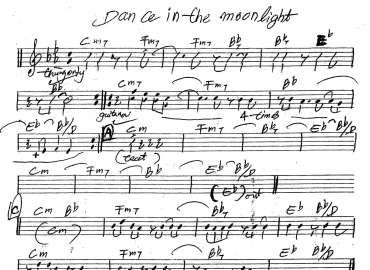 Dance in the moonlight
Cm7 Fm7 Fm7 Bb Bb7 Eb
Bb Cm7 Fm7 Bb
guitar 4-times
Eb Bb/D A Cm Fm7 Bb7 Eb Bb/D
(tacet)
Cm Fm7 Bb Eb Bb/D
(Eb) out
C Cm Bb Fm7 Bb7 Eb Bb/D
(Cm)
Cm Fm7 Bb7 Eb Bb/D